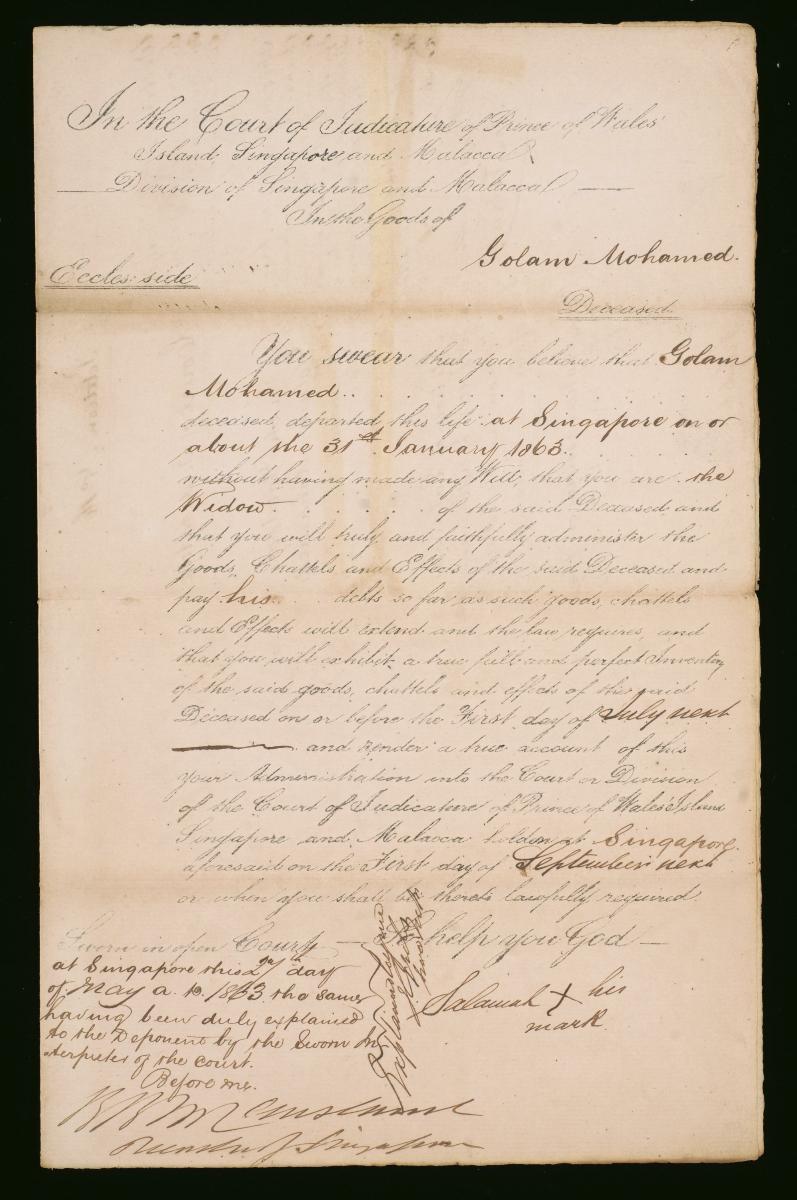 In the Court of Judicature of Prince of Wales'
Island, Singapore and Malacca
Division of Singapore and Malacca
In the Goods of
Golam Mohamed.
Eccles: side
Deceased.
You swear that you believe that Golam
Mohamed
deceased, departed this life at Singapore on or
about the 31st January 1863
without having made any Will, that you are the
Widow of the said Deceased and
that you will truly and faithfully administer the
Goods, Chattels and Effects of the said Deceased and
pay his debts so far as such goods, chattels
and Effects will extend and the law requires, and
that you will exhibit a true full and perfect Inventory
of the said goods, chattels and effects of the said
Deceased on or before the First day of July next
and render a true account of this
your Administration into the Court or Division
of the Court of Judicature of Prince of Wales Island
Singapore and Malacca holden at Singapore
aforesaid on the First day of September next
or when you shall be thereto lawfully required.
So help you God
Sworn in open Court
at Singapore this 2nd day
of May a. D. 1863 the same
having been duly explained
to the Deponent by the Sworn In
terpreter of the court.
Before me.
Salamah X his
mark.
Explained by me